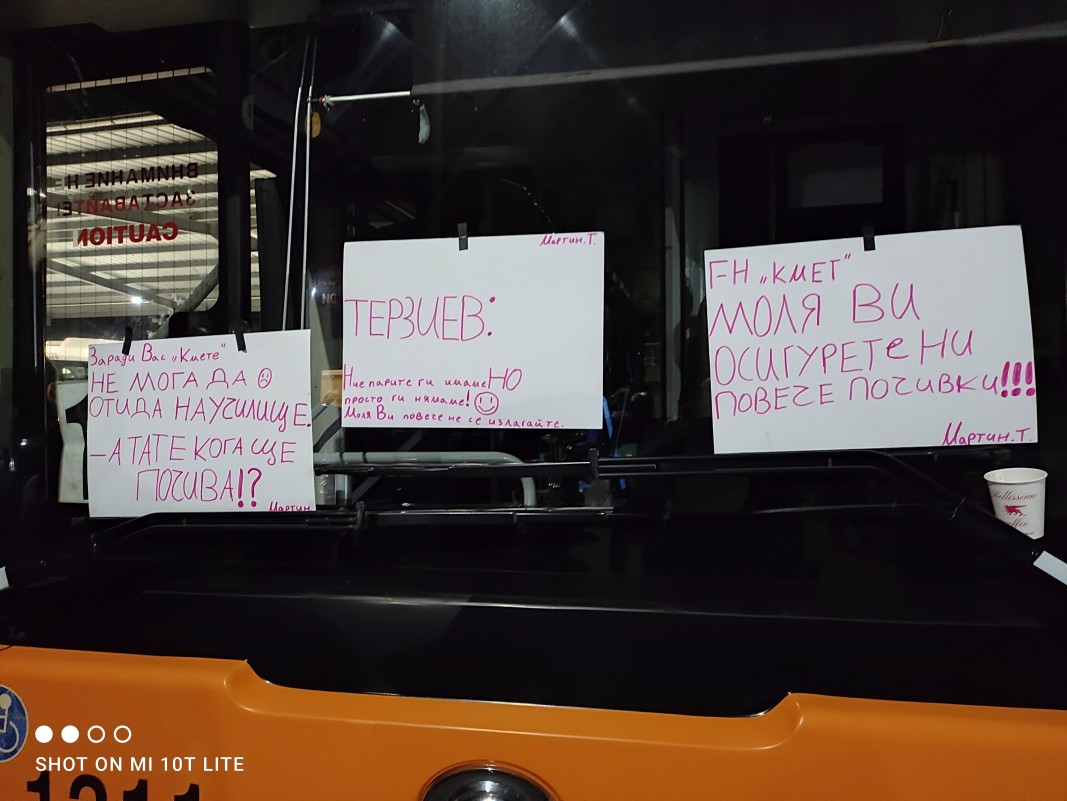 ВНИМАНИЕ Н
ЗАСТАВАЙТЕ
CAUTION
Заради Вас „Кмете“
НЕ МОГА ДА ☹
ОТИДА НА УЧИЛИЩЕ.
– А ТАТЕ КОГА ЩЕ
ПОЧИВА!?
Мартин
Мартин.Т.
ТЕРЗИЕВ:
Ние парите ги имаме НО
просто ги нямаме! ☺
Моля Ви повече не се излагайте.
ГН „КМЕТ“
МОЛЯ ВИ
ОСИГУРЕТЕ НИ
ПОВЕЧЕ ПОЧИВКИ!!!
Мартин.Т.
Bellissimo
coffee
SHOT ON MI 10T LITE